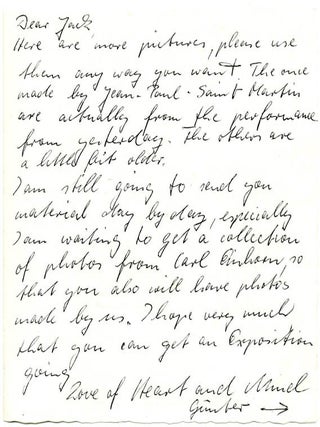 Dear Jack
Here are more pictures, please use
them any way you want. The one
made by Jean-Paul-Saint Martin
are actually from the performance
from yesterday. The others are
a little bit older.
I am still going to send you
material day by day, especially
I am waiting to get a collection
of photos from Carl Einhorn, so
that you also will have photos
made by us. I hope very much
that you can get an Exposition
going
Love of Heart and Mind
Günter →